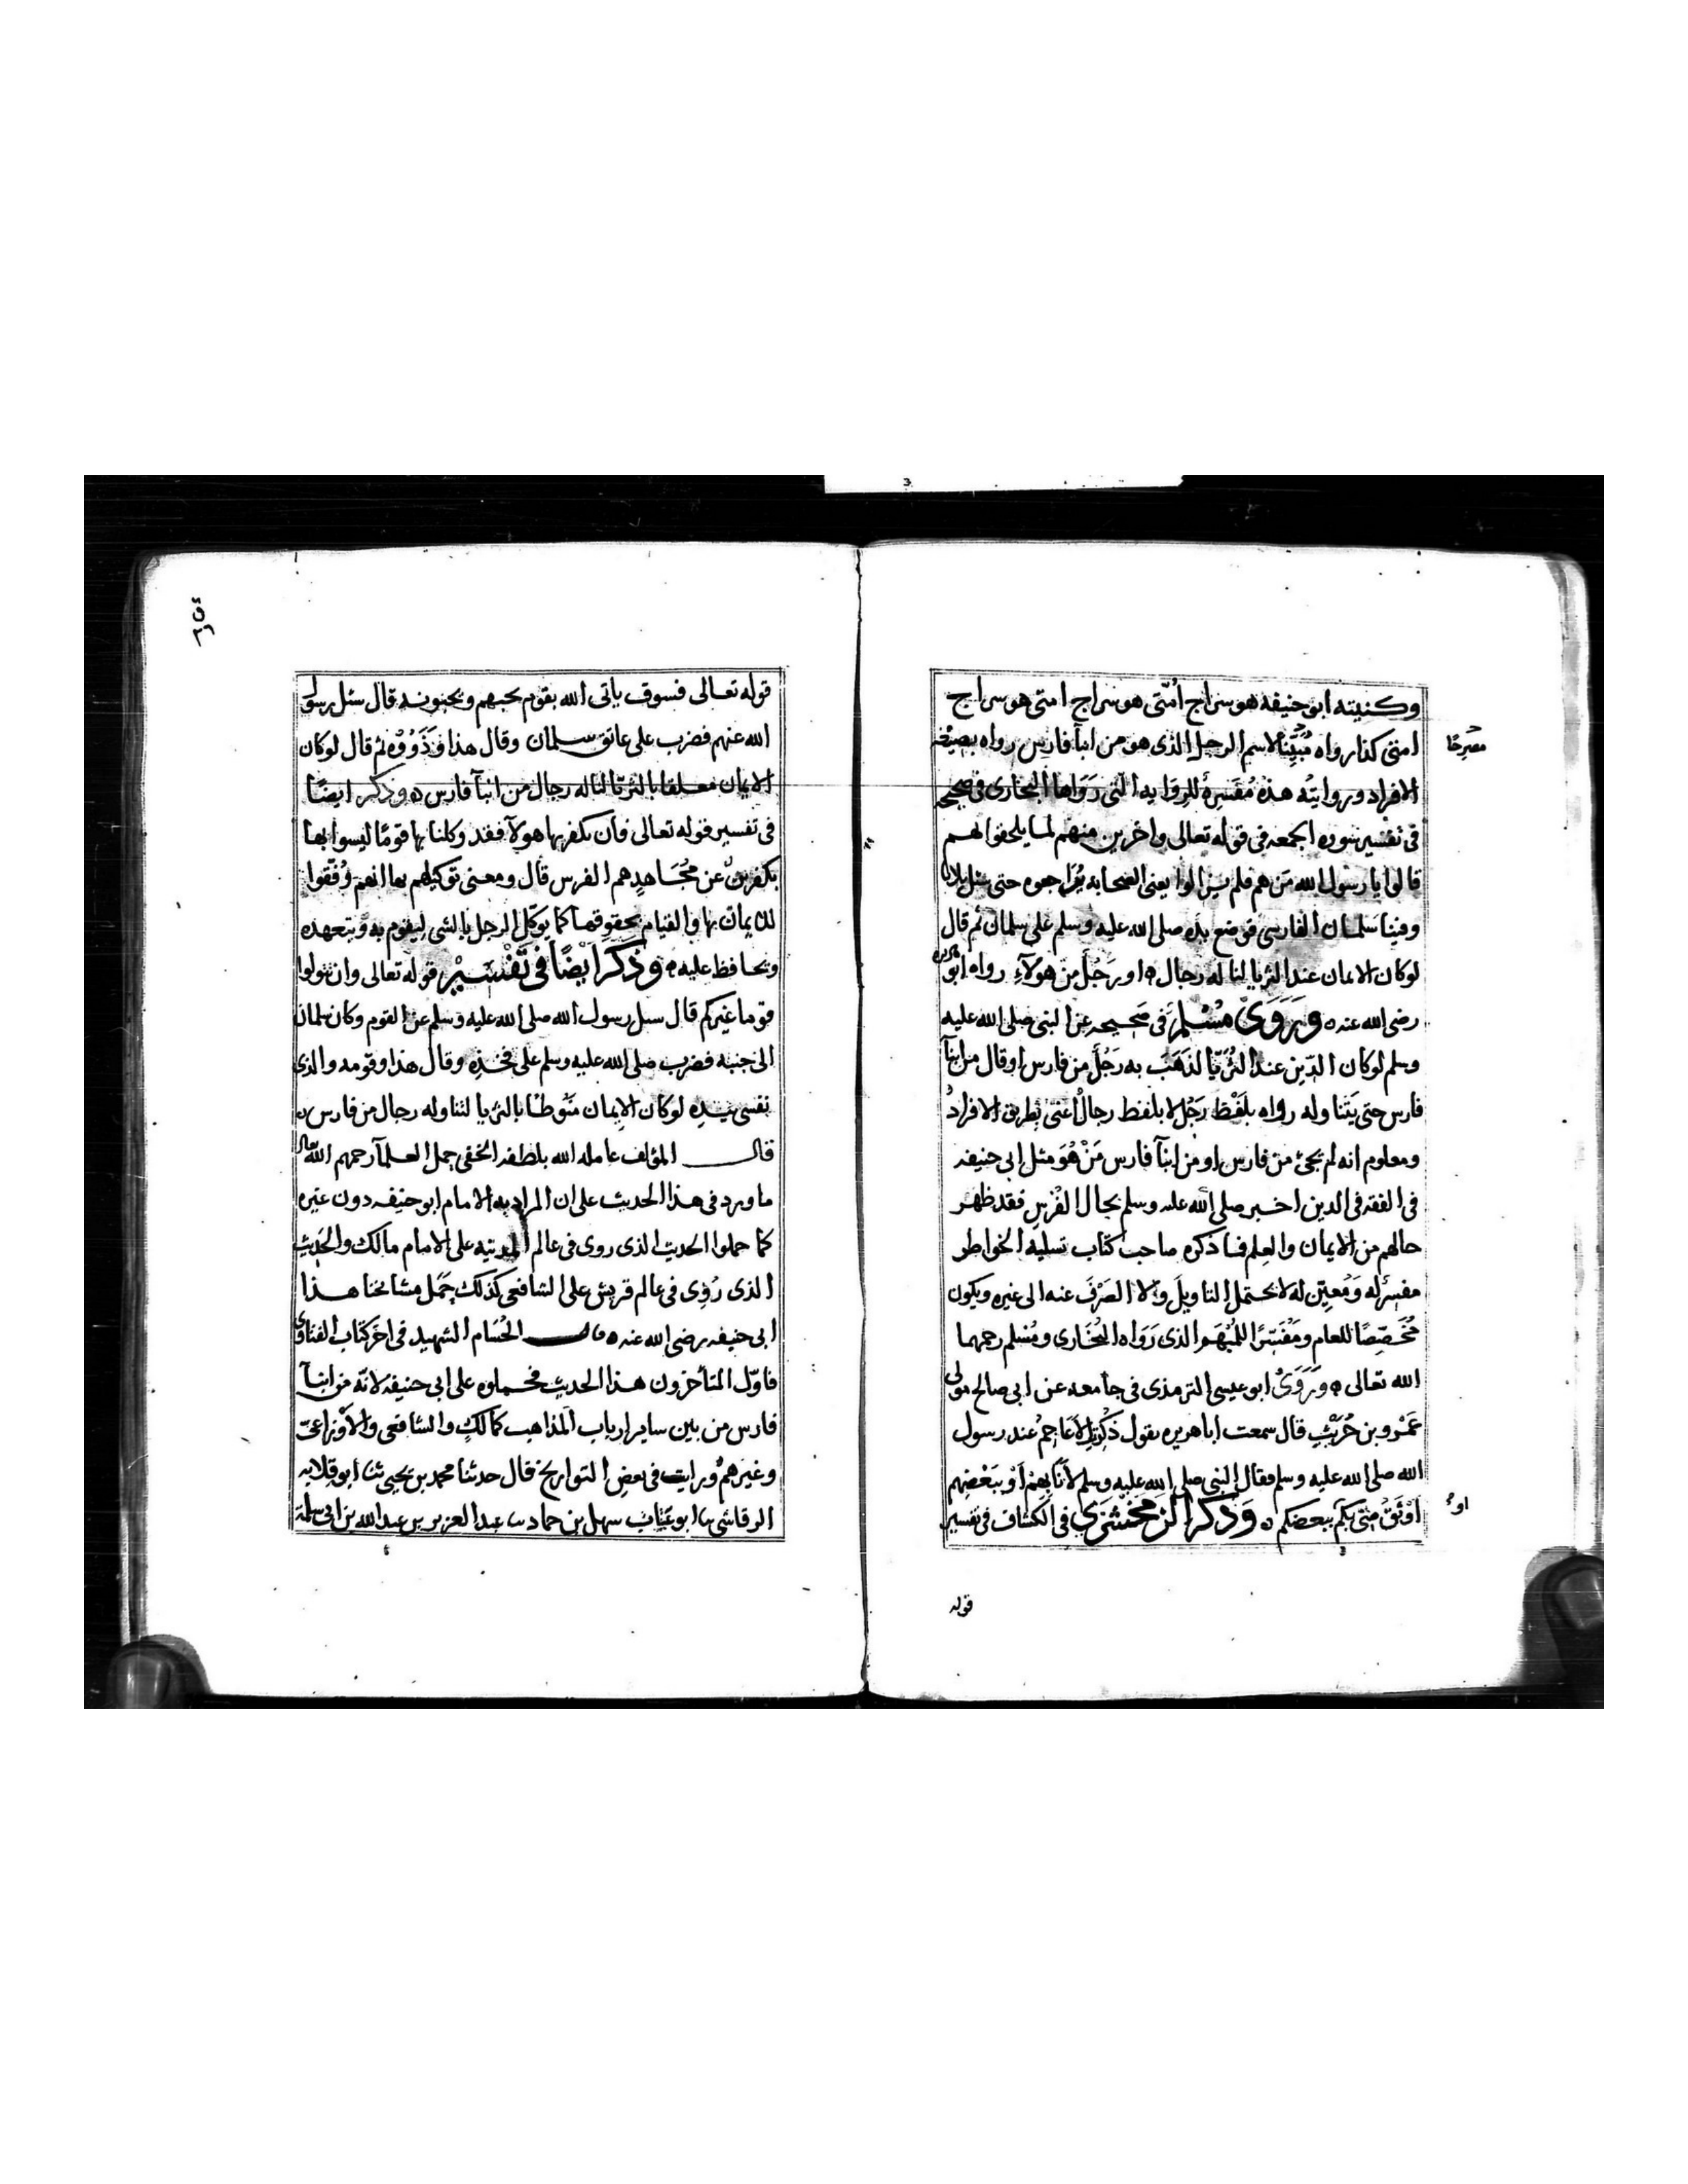 وكنيته ابو حنيفه هو سراج اُمّتى هو سراج امتى هو سراج
امتى كذا رواه مُبَيِّنًا لاسم الرجل الذى هو من ابنآ فارس رواه بصيغة
مصرحًا
الافراد وروايتُه هذهٔ مُفَسِرةٔ للروايه التى رَوَاها البخارى فى صحيحه
فى تفسير سوره الجمعه فى قوله تعالى واخرين منهم لما يلحقوا لهم
قالوا يا رسول الله مَن هم فلم يزالوا يعنى الصحابه تُراجعوه حتى سئل ثلاثا
وفينا سلمان الفارسى فوضع يده صلى الله عليه وسلم على سلمان ثم قال
لوكان الايمان عند الثريا لنا له رجال او رجُل من هولآءِ رواه ابو هريره
رضى الله عنه وَرَوَىّ مُسْلِم فى صَحيحه عن النبى صلى الله عليه
وسلم لوكان الدّين عند الثُّرَيّا لذَهَبَ به رَجُلَ من فارس او قال من ابنآ
فارس حتى يَتَناوله رواه بلَفْظ رَجُل لا بلفظ رجالْ اعنى بطريق الافراد
ومعلوم انه لم يجئ من فارس او من ابنآ فارس مَنْ هُوَ مثل ابى حنيفه
فى الفقه فى الدين اخبر صلى الله عليه وسلم بحال الفُرْسِ فقد ظهر
حالهم من الايمان والعِلم فما ذكره صاحب كتاب تسليه الخواطر
مفسر له وَمُعيِّن له لا يحتمل التاويلَ ولا الصَرْفَ عنه الى غيره ويكون
مُخَصِّصًا للعام ومُفَسِّرًا للمُبْهَم الذى رَوَاه البُخَارى ومُسْلم رحمهما
الله تعالى وَرَوَىٰ ابو عيسى الترمذى فى جامعه عن ابى صالح مولى
عَمْرو بن حُرَيْثٍ قال سمعت اباهريره يقول ذُكِرَتِ الاَعَاجِمُ عند رسول
الله صلى الله عليه وسلم فقال النبى صلى الله عليه وسلم لأَنَا بِهِمْ اَوْ ببَعْضِهِم
اَوْثَقُ مِنّى بكم ببعضكم وَذكرَ الزمخشرِى فى الكشاف فى تفسير
اوْ
قوله
قوله تعالى فسوف ياتى الله بقوم يحبهم ويحبونه قال سئل رسول
الله عنهم فضرب على عاتق سلمان وقال هذا وَذَوُوْه ثم قال لوكان
الايمان معلقا بالثريّا لناله رجال من ابنآ فارس وذكر ايضًا
فى تفسير قوله تعالى فان يكفر بها هولآ فقد وكلنا بها قومًا ليسوا بها
بكفرين عن مُجَاهِد هم الفرس قال ومعنى توكيلهم بها انهم وُفِّقوا
للايمان بها والقيام بحقوقها كما يوَكّل الرجل بالشى ليقوم به ويتعهده
ويحافظ عليه وذكرَ ايْضًا فى تَفْسِيْر قوله تعالى وان تتولوا
قوما غيركم قال سئل رسول الله صلى الله عليه وسلم عن القوم وكان سلمان
الى جنبه فضرب صلى الله عليه وسلم على فخذه وقال هذا وقومه والذى
نفسى بيده لوكان الايمان مَنُوطًا بالثريا لتناوله رجال من فارس
قال المؤلف عامله الله بلطفه الخفى حمل العلمآ رحمهم الله تعالى
ما ورد فى هذا الحديث على ان المراد به الامام ابو حنيفه دون غيره
كما حملوا الحديث الذى روى فى عالم المدينه على الامام مالك والحَديث
الذى رُوِى فى عالم قريش على الشافعى كذلك حَمَل مشايخنا هذا
ابى حنيفه رضى الله عنه قال الحُسَام الشهيد فى اخر كتاب الفتاوى
فاوّل المتأخرون هذا الحديث فحملوه على ابى حنيفه لانّه من ابنآ
فارس من بين ساير ارباب المذاهب كمالكٍ والشافعى والأوْزاعىّ
وغيرهم ورايت فى بعض التواريخ قال حدثنا محمد بن يحيى ثنا ابو قلابه
الرقاشى ثنا ابو عَتاب سهل بن حماد ثنا عبد العزيز بن عبد الله بن ابى سلمة